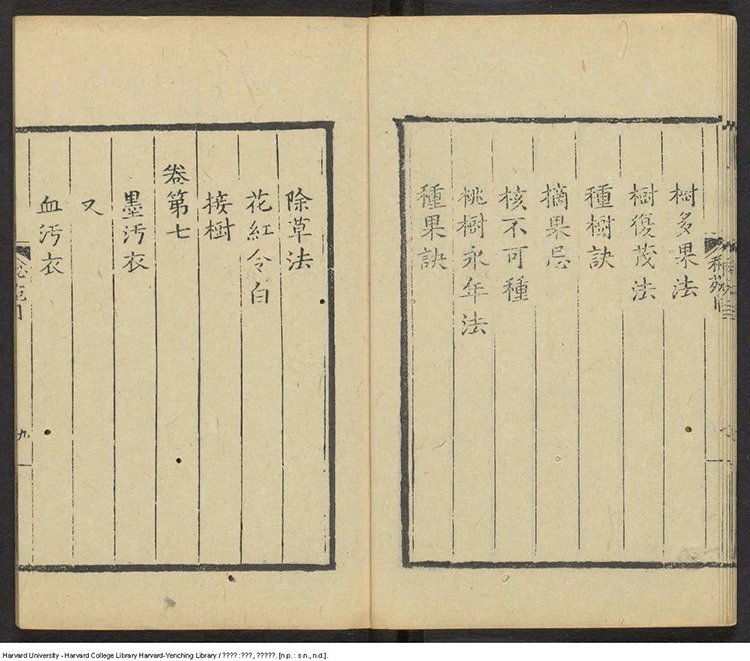 樹多果法
樹復茂法
種樹訣
摘果忌
核不可種
桃樹永年法
種果訣
除草法
花紅令白
接樹
卷第七
墨汚衣
又
血汚衣
九
Harvard University - Harvard College Library Harvard-Yenching Library / ???? :???, ?????. [n.p. : s.n., n.d.].